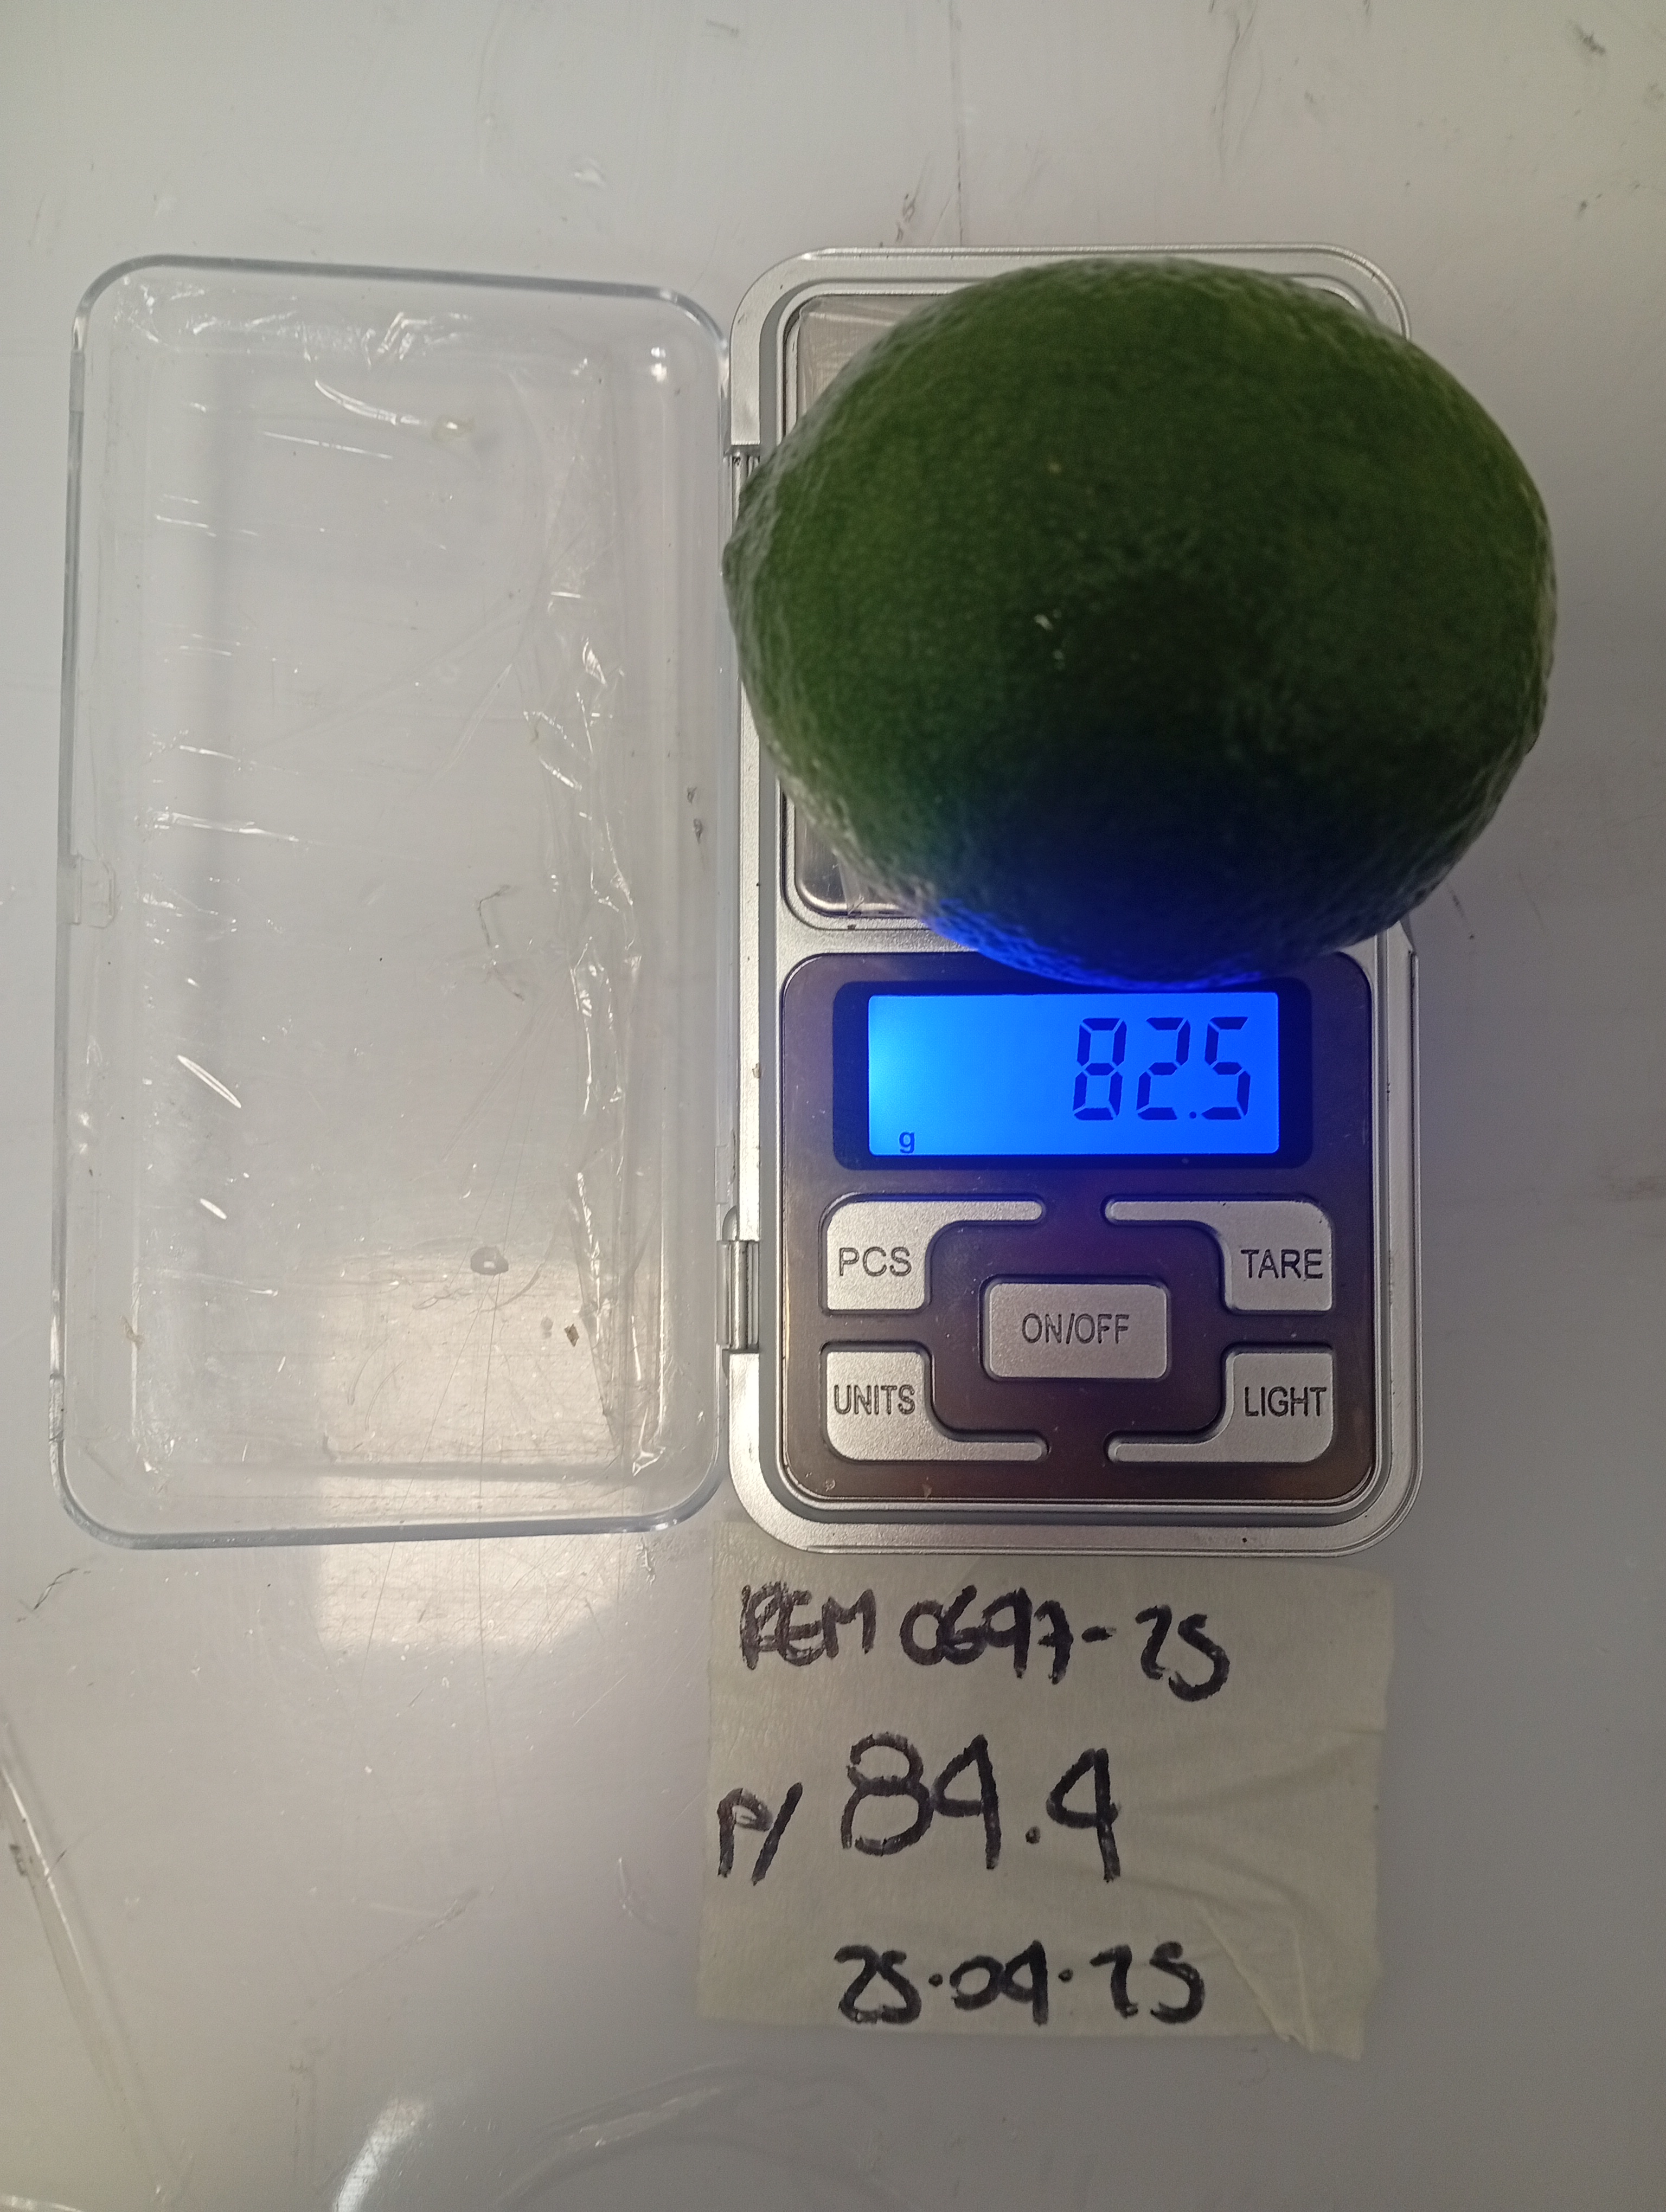 82.5
g
PCS
TARE
ON/OFF
UNITS
LIGHT
REM 0697-25
P/ 84.4
25.04.25